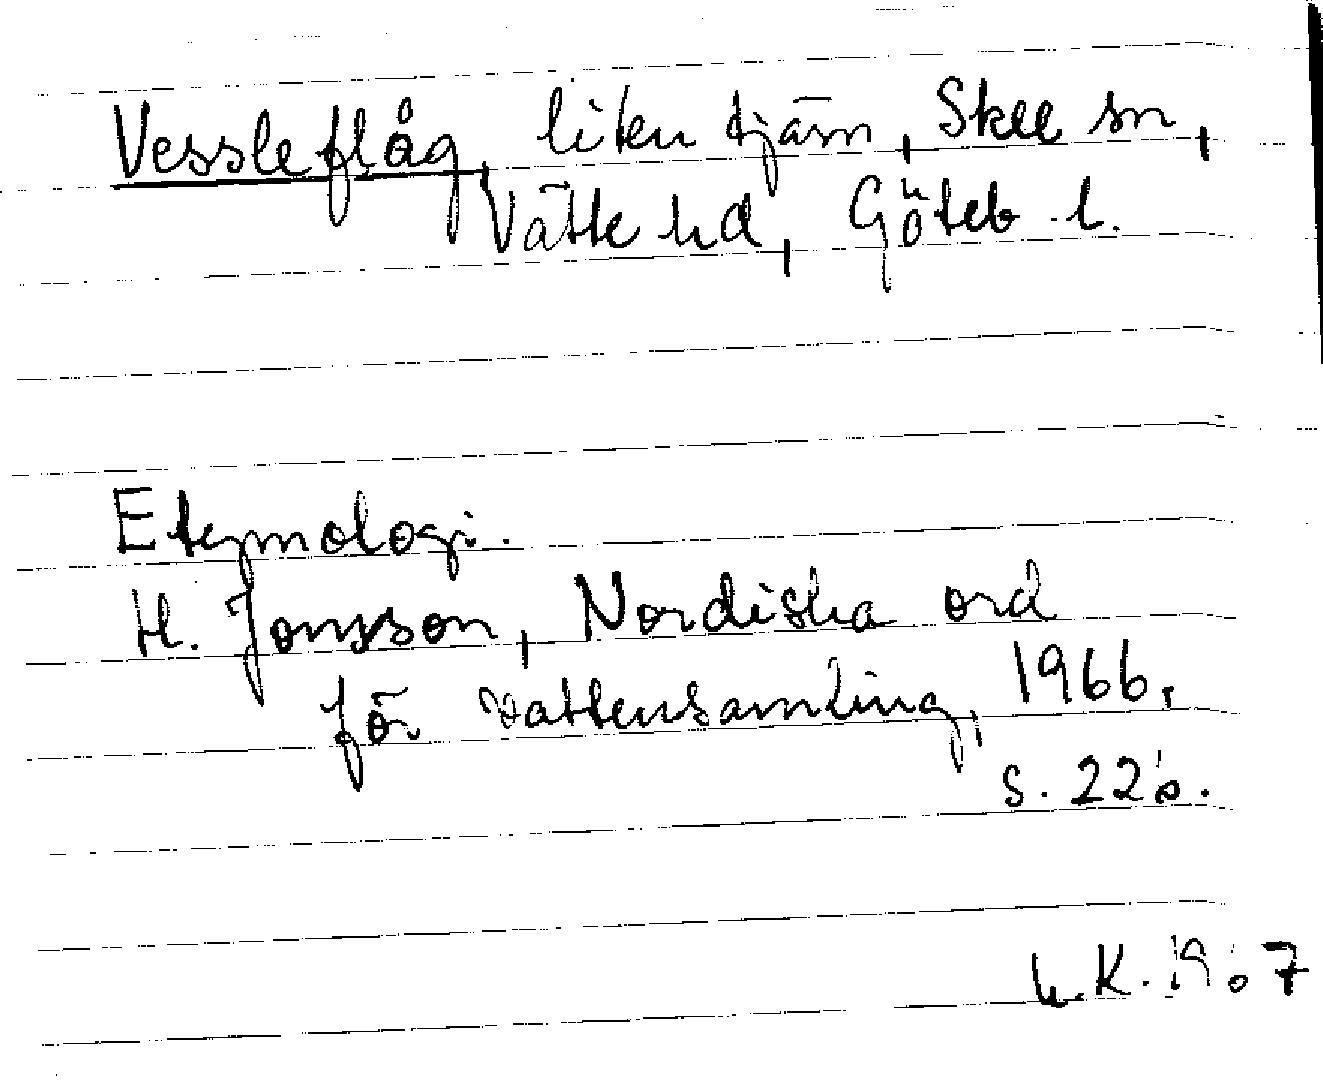 Vessleflåg, liten tjärn, Skee sn,
Vätte hd, Göteb. l.
Etymologi.
H. Jonsson, Nordiska ord
för vattensamling, 1966,
s. 226.
K. 1967